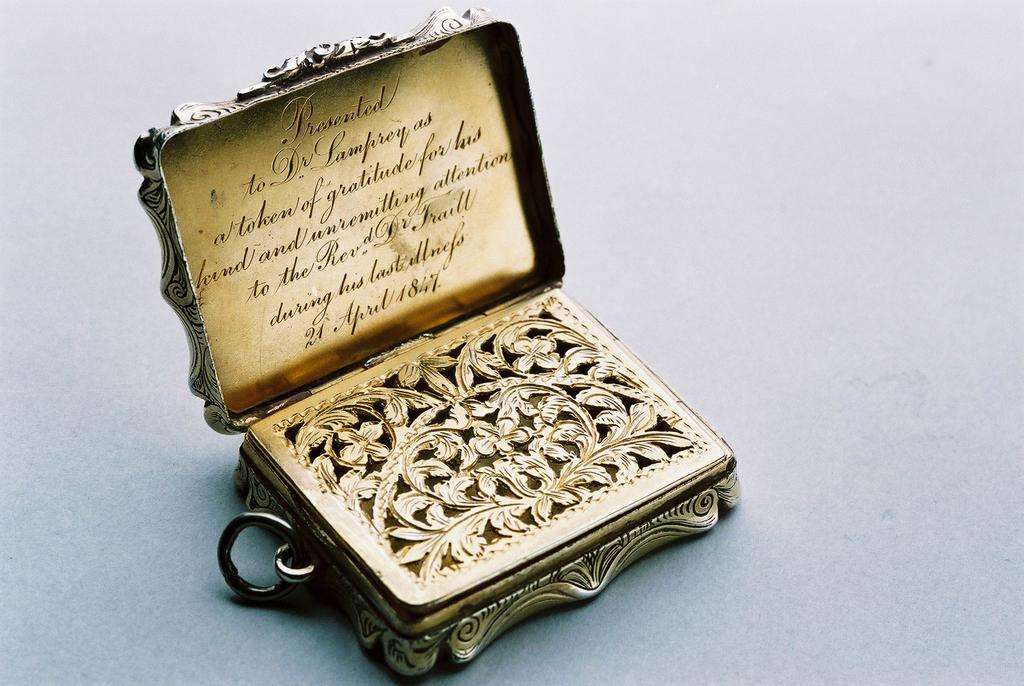 Presented
to Dr. Lamprey as
a token of gratitude for his
kind and unremitting attention
to the Revd. Dr Traill
during his last illness
21 April 1847.